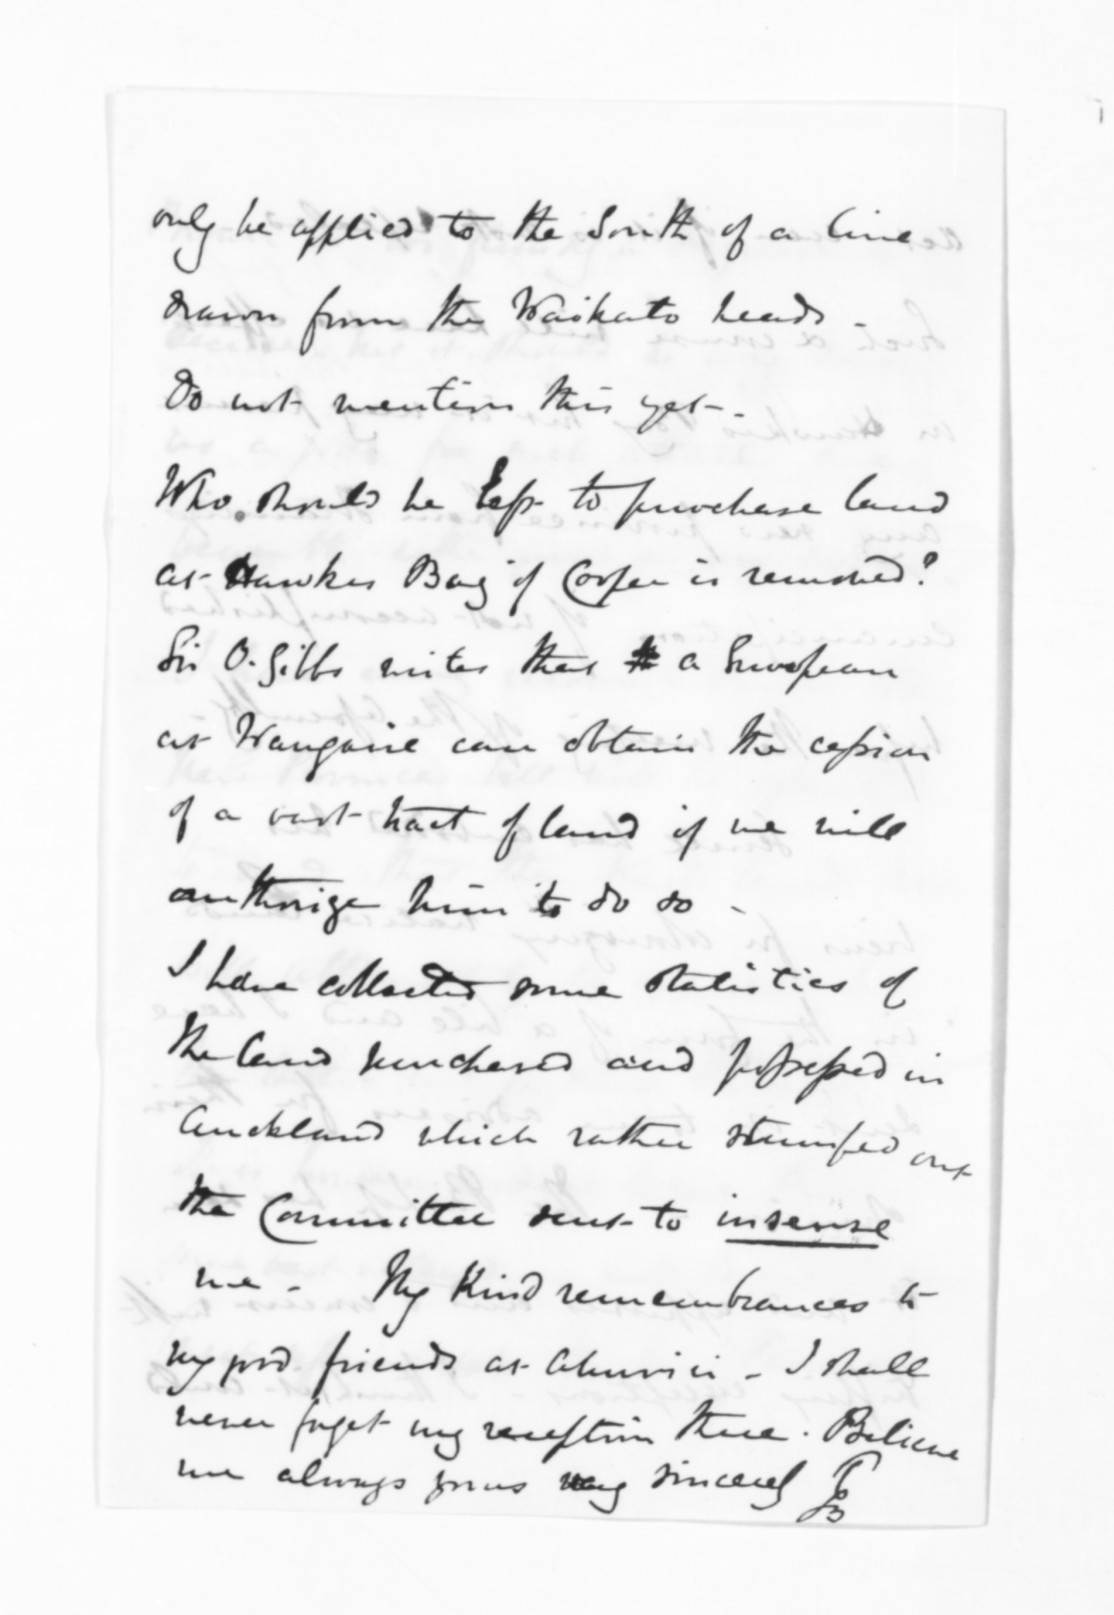 only be applied to the South of a line
drawn from the Waikato heads -
Do not mention this yet -.
Who should be left to purchase land
at Hawkes Bay if Cooper is removed?
Sir O. Gibbs writes that a European
at Wangarie can obtain the cession
of a vast tract of land if we will
authorize him to do so -
I have collected some statistics of
the land purchased and possessed in
Auckland which rather stumped out
the Committee sent to insense
me - My Kind remembrances to
my good friends at Ahuriri - I shall
never forget my reception there. Believe
me always yours very sincerely